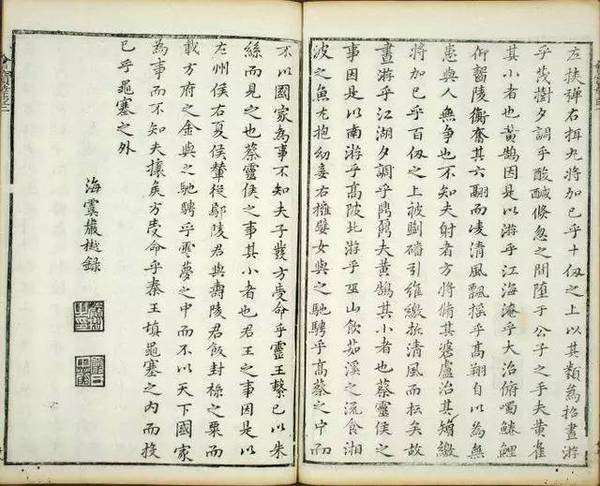 左挾彈右丸將加已乎十仞之上以其類為招晝游
乎茂樹夕調乎酸醎倏忽之間墮于公子之手夫黃雀
其小者也黃鵠因是以游乎江海淹乎大沼俯噣鯉
仰嚙陵衡奮其六翮而凌清風飄搖乎高翔自以為無
患與人無爭也不知夫射者方將脩其盧治其矰繳
將加已乎百仞之上被磻引維繳清風而抎矣故
晝游乎江湖夕調乎鼎鼐夫黃鵠其小者也蔡靈侯之
事因是以南游乎高陂北游乎巫山飲茹溪之流食湘
波之魚左抱幼妾右擁嬖女與之馳騁乎高蔡之中而
不以國家為事不知夫子發方受命乎靈王繫已以朱
絲而見之也蔡靈侯之事其小者也君王之事因是以
左州侯右夏侯輦從鄢陵君與壽陵君飯封祿之粟而
載方府之金與之馳騁乎雲夢之中而不以天下國家
為事而不知夫穰矦方受命乎秦王填黽塞之內而投
已乎黽塞之外
海虞嚴樾錄